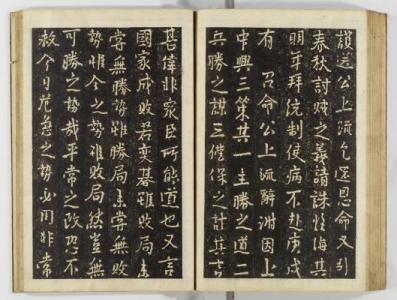 讀遂公上疏乞還恩命又引
春秋討賊之義請誅惟海其
明年拜統制使病不赴庚戌
有召命公上疏辭謝因上
中興三策其一主勝之道二
兵勝之謀三僅保之計其言
甚偉非眾臣所能道也又言
國家成敗若奕碁雖敗局亦
嘗無勝勢雖勝局未嘗無敗
勢非今之勢雖敗局然豈無
可勝之勢哉平常之政恐不
救今日危急之勢必用非常